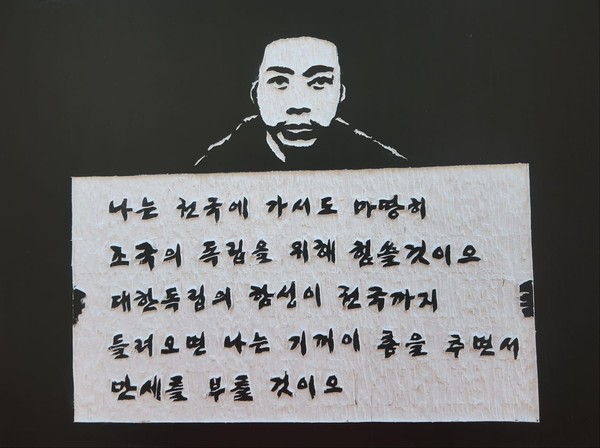 나는 천국에 가서도 마땅히
조국의 독립을 위해 힘쓸것이오
대한독립의 함성이 천국까지
들려오면 나는 기꺼이 춤을 추면서
만세를 부를 것이오